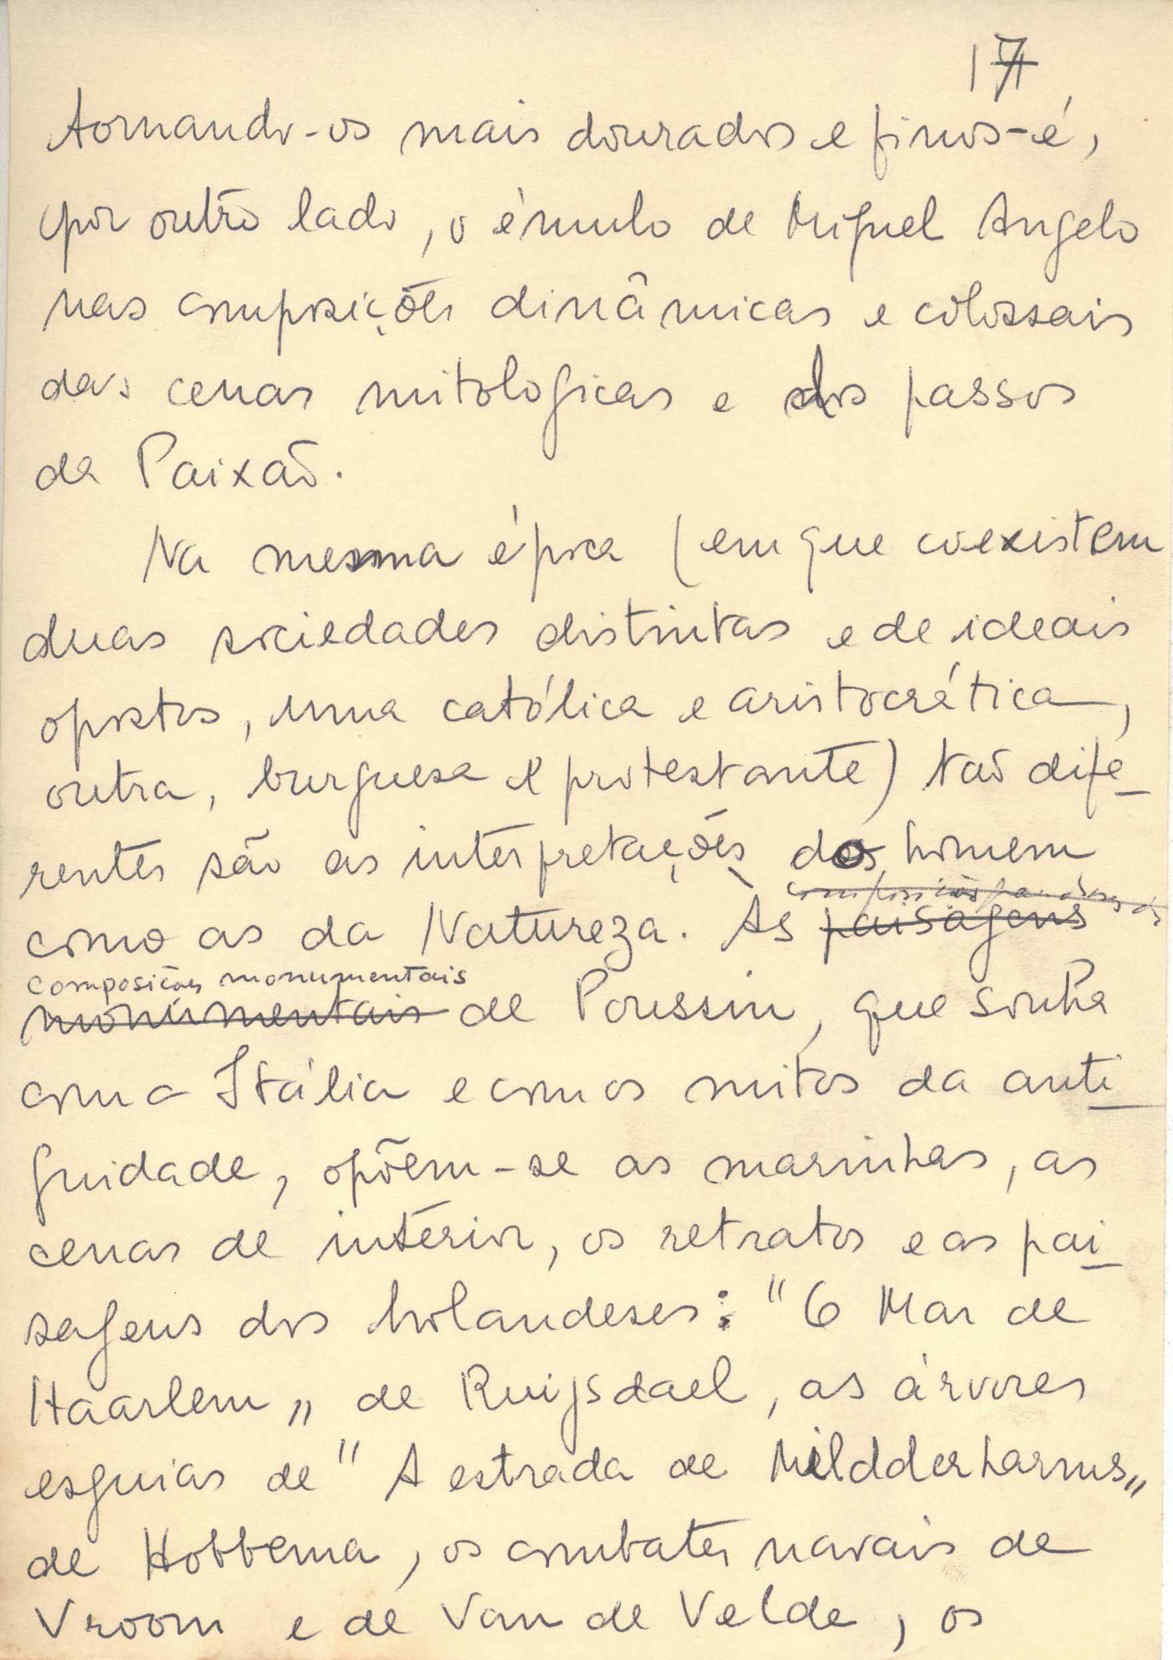 17
tornando-os mais dourados e finos - é,
por outro lado, o émulo de Miguel Angelo
nas composições dinâmicas e colossais
das cenas mitologicas e dos passos
da Paixão.
Na mesma época (em que coexistem
duas sociedades distintas e de ideais
opostos, uma católica e aristocrática,
outra, burguesa e protestante) tão dife-
rentes são as interpretações do homem
composições
como as da Natureza. As paisagens
composições monumentais
monumentais de Poussin, que sonha
com a Itália e com os mitos da anti-
guidade, opõem-se as marinhas, as
cenas de interior, os retratos e as pai-
sagens dos holandeses: "O Mar de
Haarlem" de Ruijsdael, as árvores
esguias de "A estrada de Mildderharnis"
de Hobbema, os combates navais de
Vroom e de Van de Velde, os